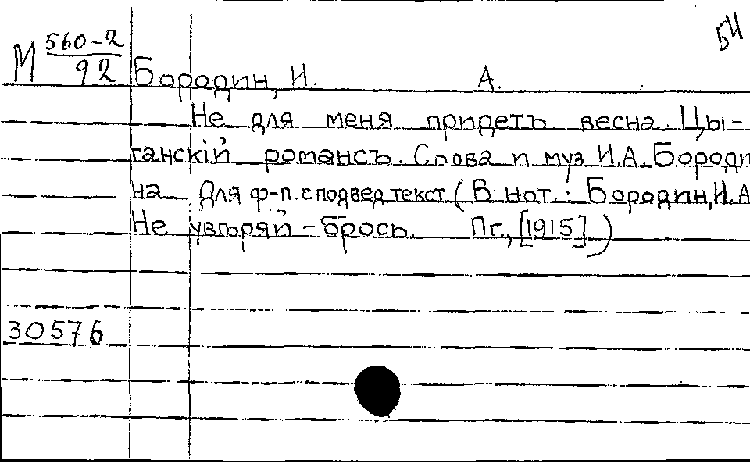 54
М 560-2/92
Бородин, И. А.
Не для меня придетъ весна. Цы-
ганскiй романсъ. Слова и муз И.А. Бороди
на Для ф-п. с подвед текст (В нот.: Бородин, И.А
Не узгоряй - брось. Пг., [1915])
30576